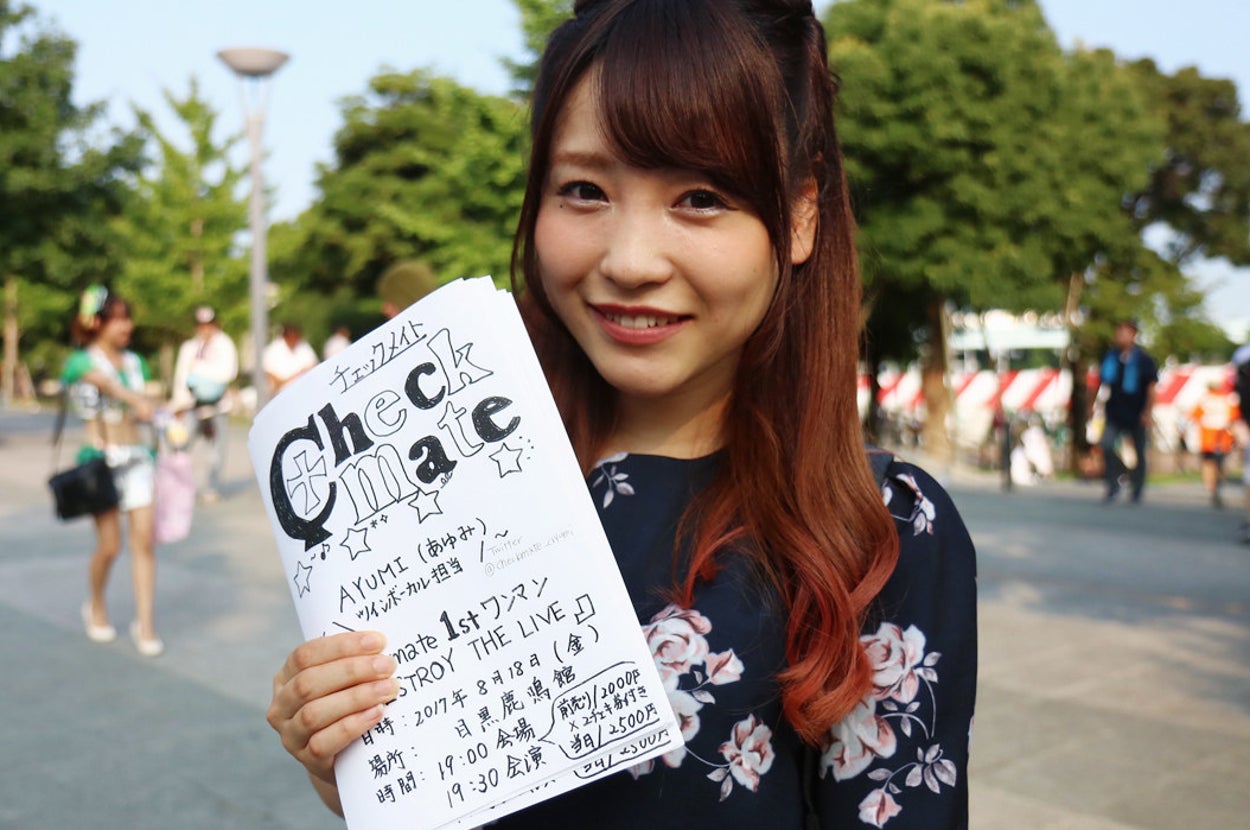 チェックメイト
Check
mate
AYUMI (あゆみ)
ツインボーカル担当
Twitter
@checkmate_ayumi
mate 1stワンマン
STROY THE LIVE』
日時：2017年8月18日(金)
場所： 目黒鹿鳴館
時間：19:00 会場
19:30 会演
前売り/2000円
×2チェキ券付き
当日/2500円
2500円